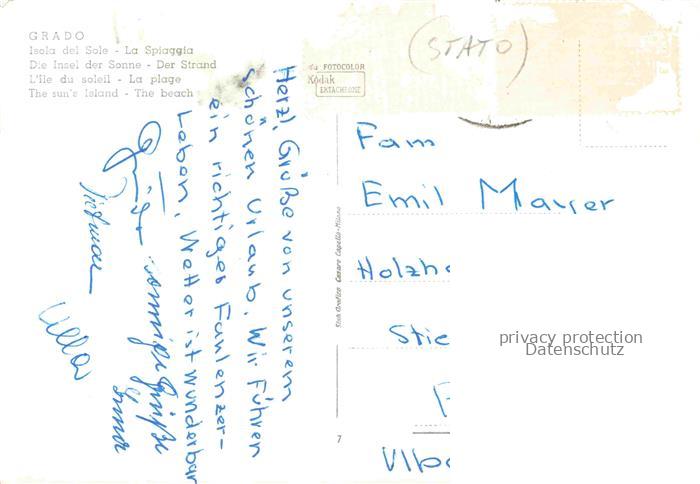 GRADO
Isola del Sole - La Spiaggia
Die Insel der Sonne - Der Strand
L'île du soleil - La plage
The sun's Island - The beach
da FOTOCOLOR
Kodak
EKTACHROME
(STATO)
Herzl. Grüße von unserem
schönen Urlaub. Wir führen
ein richtiges Faulenzer-
Leben, Wetter ist wunderbar
sonnige Grüße
Dietmar
Ulla
Stab. Grafico Cesare Capello - Milano
Fam
Emil Mayer
Holzh
Stie
7
privacy protection
Datenschutz